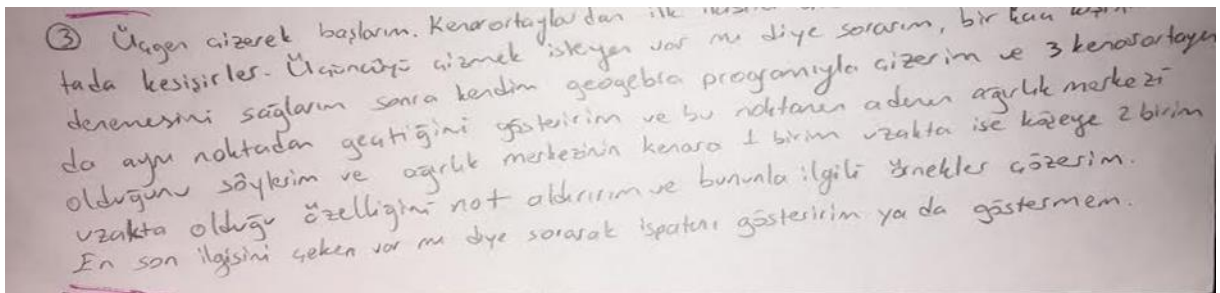 ③ Üçgen çizerek başlarım. Kenarortaylardan ilk
tada kesişirler. Üçüncüyü çizmek isteyen var mı diye sorarım, bir kaç
denemesini sağlarım sonra kendim geogebra programıyla çizerim ve 3 kenarortayın
da aynı noktadan geçtiğini gösteririm ve bu noktanın adının ağırlık merkezi
olduğunu söylerim ve ağırlık merkezinin kenara 1 birim uzakta ise köşeye 2 birim
uzakta olduğu özelliğini not aldırırım ve bununla ilgili örnekler çözerim.
En son ilgisini çeken var mı diye sorarak ispatını gösteririm ya da göstermem.